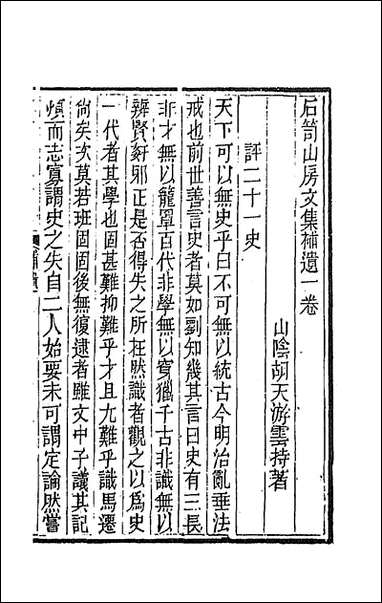 石笥山房文集補遺一卷
山陰胡天游雲持著
評二十一史
天下可以無史乎曰不可無以統古今明治亂垂法
戒也前世善言史者莫如劉知幾其言曰史有三長
非才無以籠罩百代非學無以穿獵千古非識無以
辨賢姦邪正是否得失之所在然識者觀之以爲史
一代者其學也固甚難抑難乎才且尤難乎識馬遷
尚矣次莫若班固固後無復逮者雖文中子議其記
煩而志寡謂史之失自二人始要未可謂定論然嘗
補遺